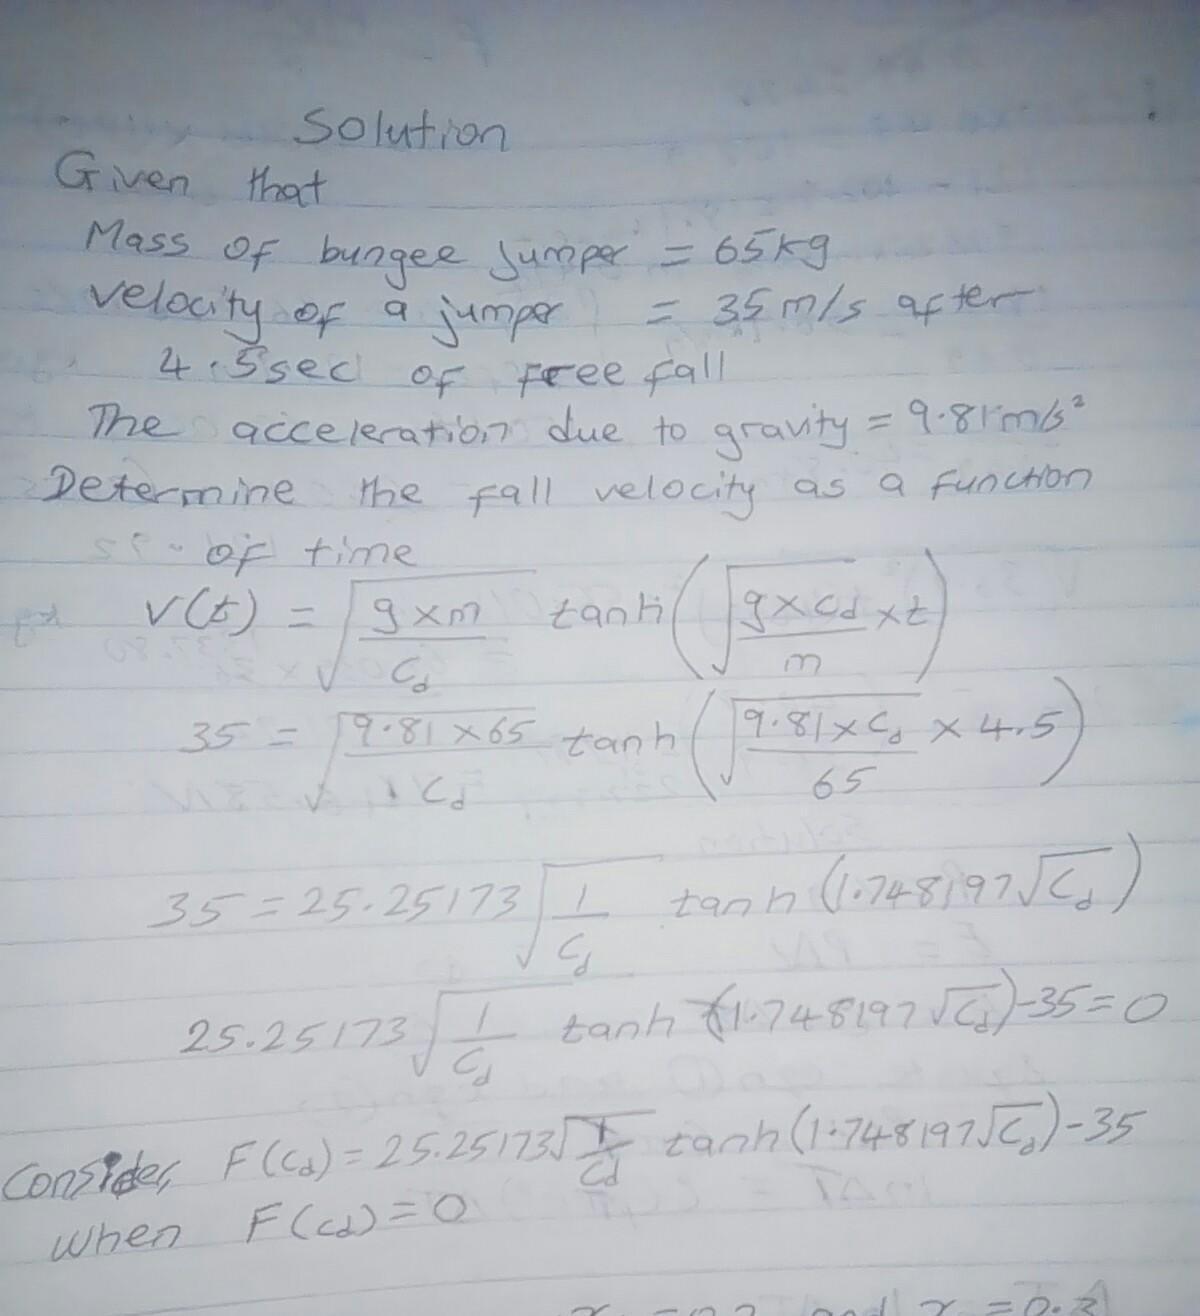 Solution
Given that
Mass of bungee jumper = 65kg
velocity of a jumper = 35m/s after
4.5sec of free fall
The acceleration due to gravity = 9.81m/s²
Determine the fall velocity as a function
of time
V(t) = √(g×m/Cd) tanh(√(g×cd/m) × t)
35 = √(9.81×65/Cd) tanh(√(9.81×Cd/65) × 4.5)
35 = 25.25173√(1/Cd) tanh(1.748197√Cd)
25.25173√(1/Cd) tanh(1.748197√Cd)-35=0
Consider, F(Cd) = 25.25173√(1/Cd) tanh(1.748197√Cd)-35
when F(cd)=0
and x = 0.3